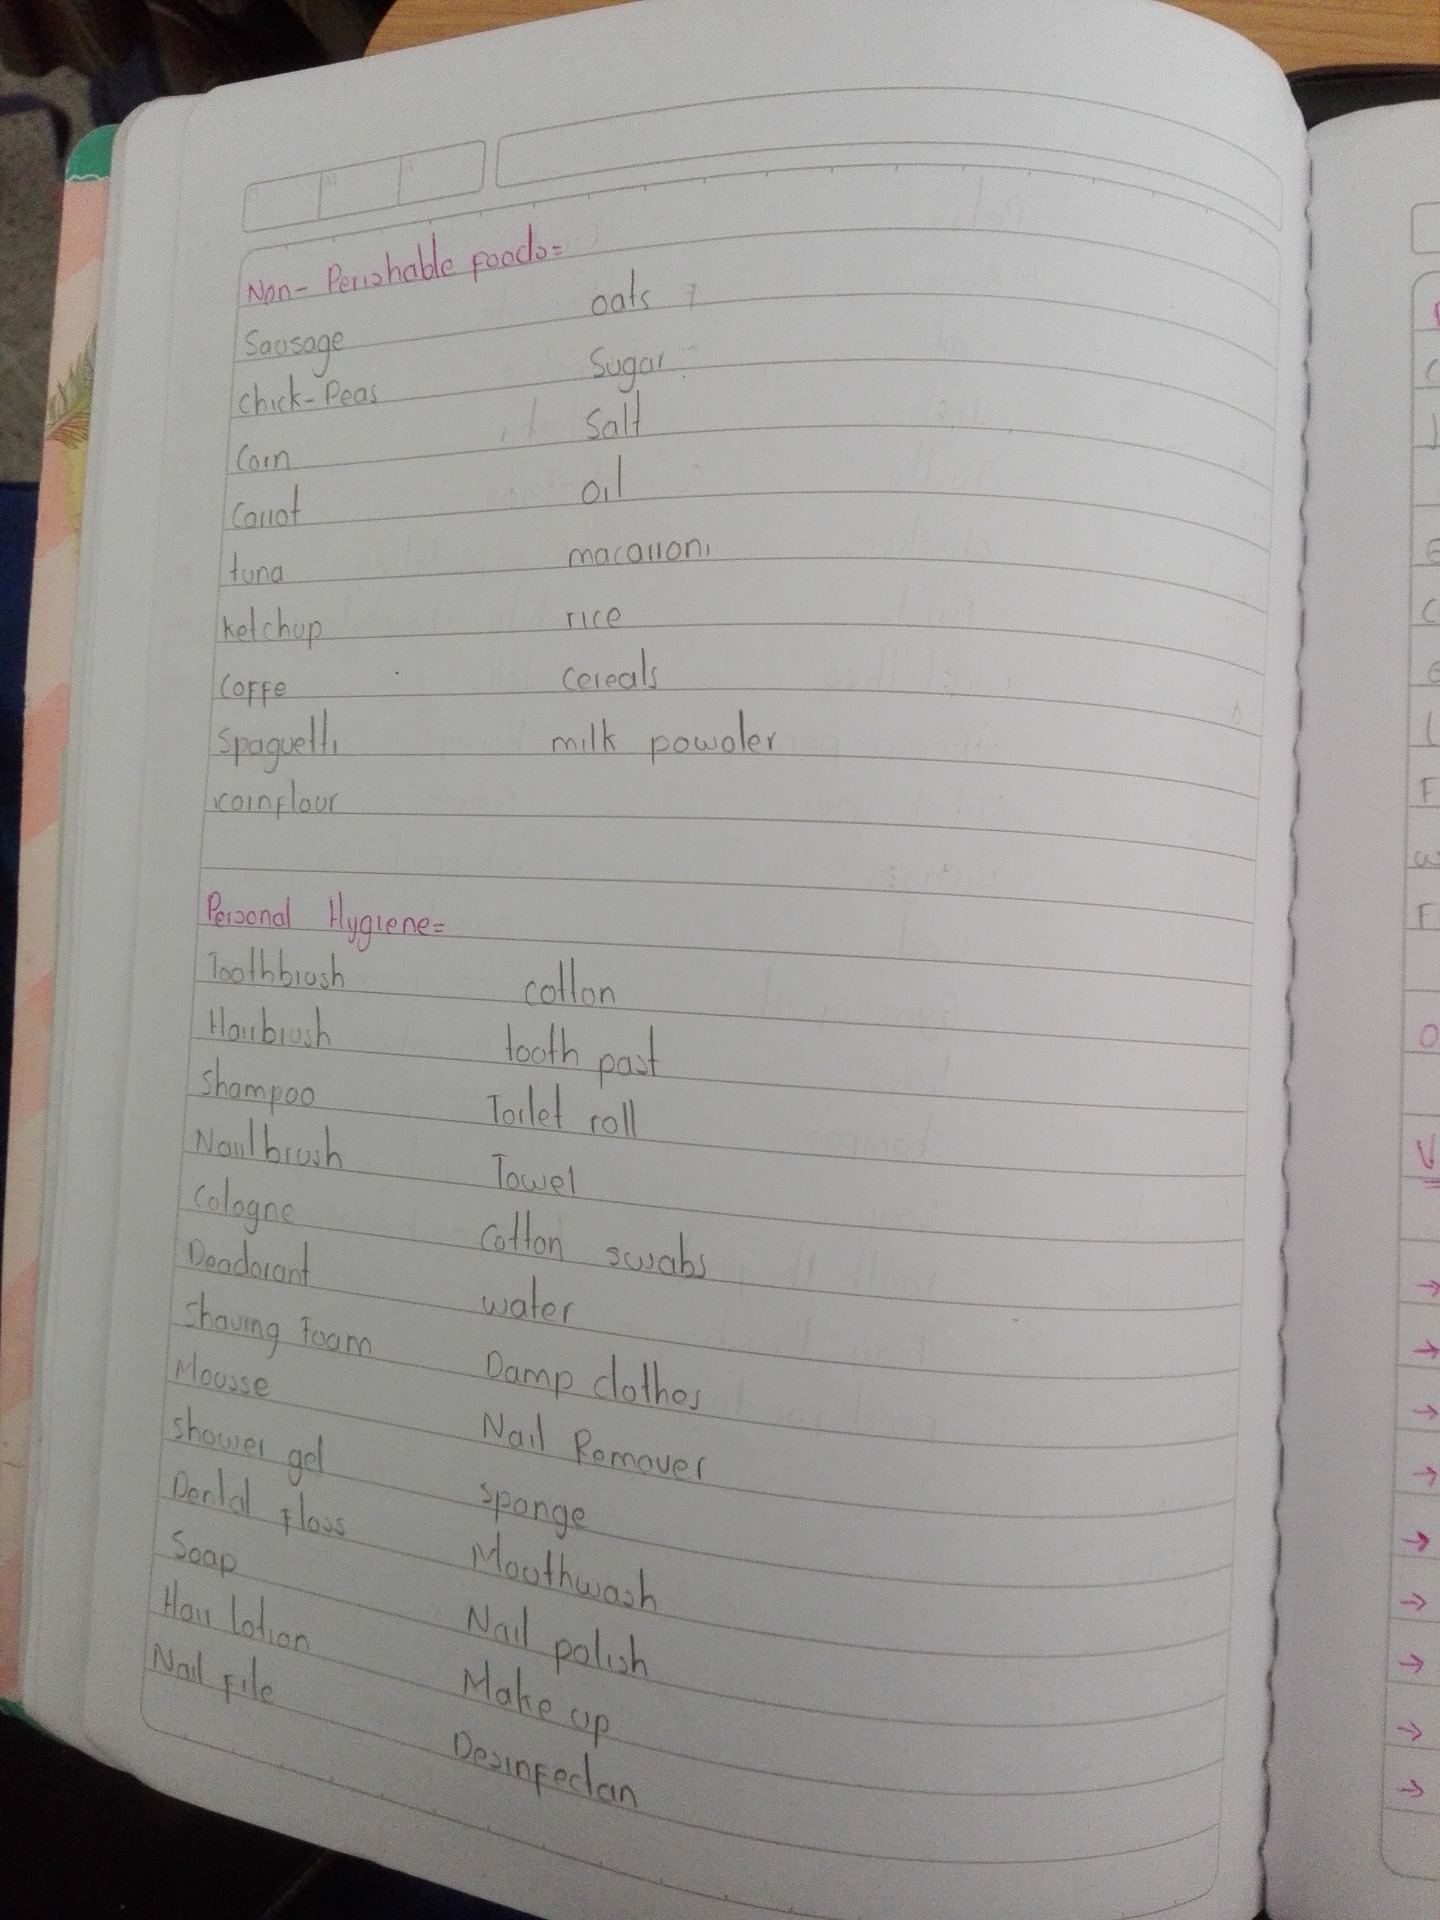 Non- Perishable foods=
Sausage oats
chick-Peas Sugar
Corn Salt
Carrot oil
tuna macarroni
ketchup rice
Coffe cereals
Spaguetti milk powder
cornflour
Personal Hygiene=
Toothbrush cotton
Hairbrush tooth past
Shampoo Toilet roll
Nailbrush Towel
Cologne Cotton swabs
Deadorant water
Shaving Foam Damp clothes
Mousse Nail Remover
shower gel sponge
Dental Floss Mouthwash
Soap Nail polish
Hair lotion Make up
Nail File Desinfectan